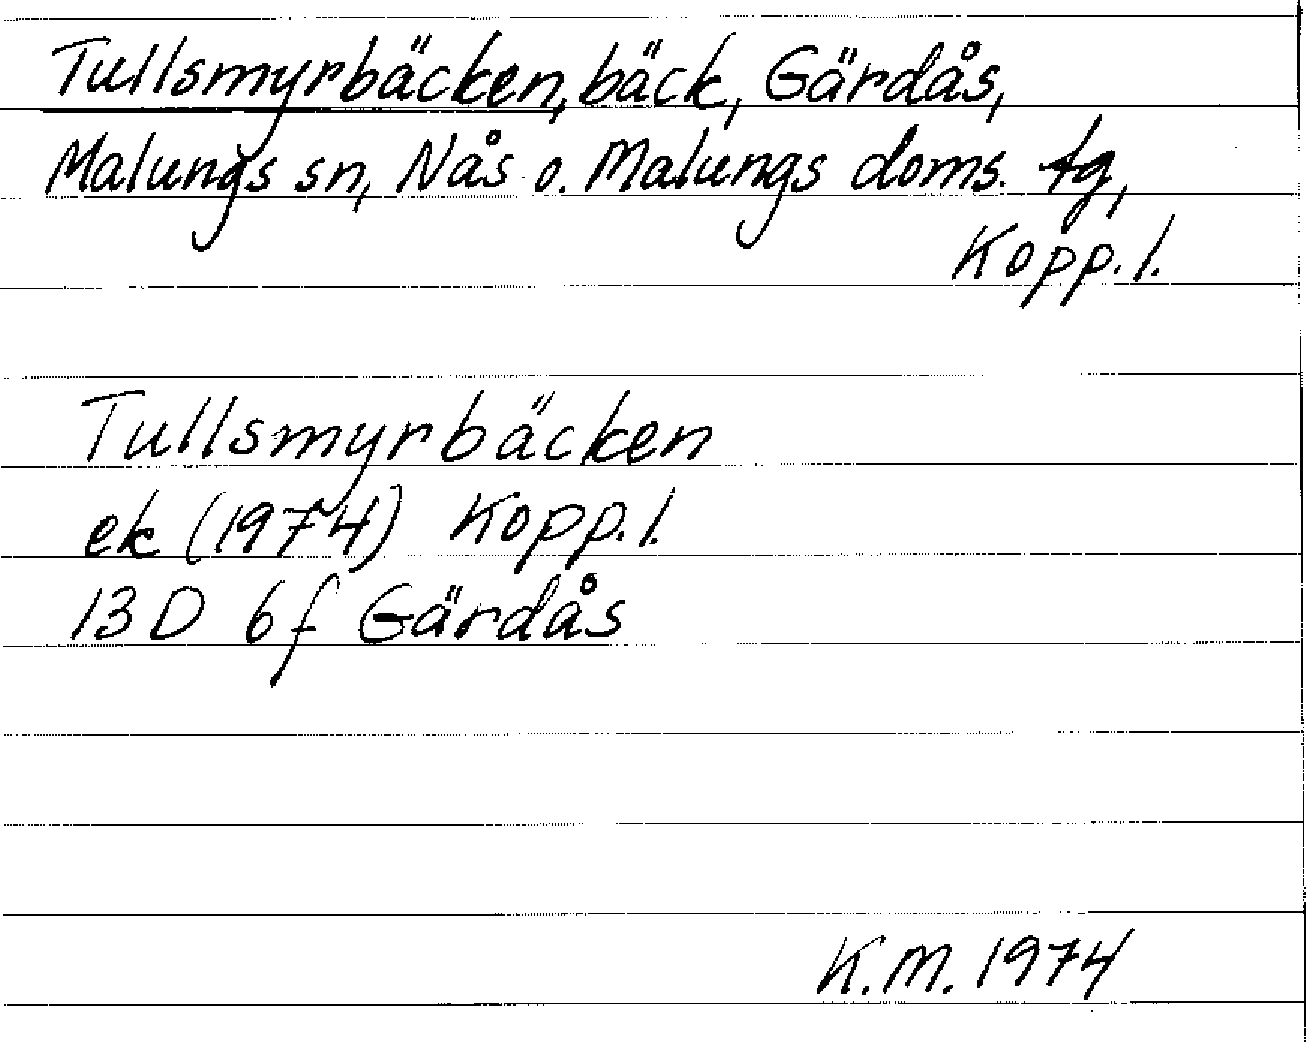 Tullsmyrbäcken, bäck, Gärdås,
Malungs sn, Nås o. Malungs doms. tg,
Kopp. l.
Tullsmyrbäcken
ek (1974) Kopp. l.
13D 6f Gärdås
K.M. 1974